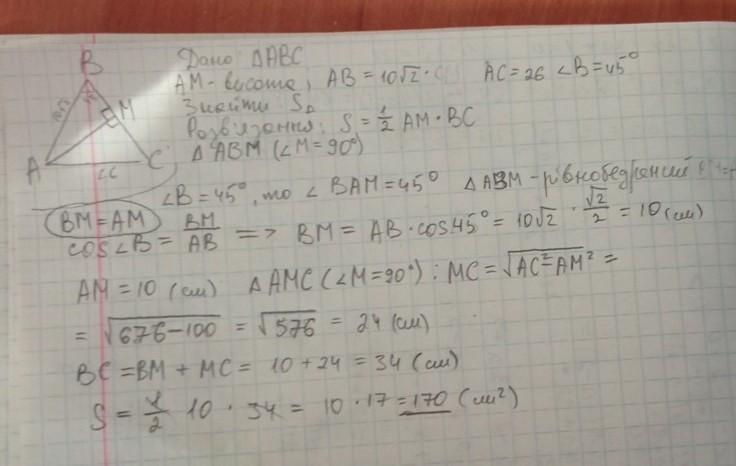 B
Дано △ABC
AM - висота, AB = 10√2. AC = 26 ∠B = 45°
Знайти S△
Розв'язання: S = 1/2 AM · BC
△ ABM (∠M = 90°)
10√2
M
A
C
26
∠B = 45°, то ∠BAM = 45° △ABM - рівнобедрений
BM = AM
cos∠B = BM/AB => BM = AB · cos45° = 10√2 · √2/2 = 10 (см)
AM = 10 (см) △AMC (∠M = 90°): MC = √AC² - AM² =
= √676 - 100 = √576 = 24 (см)
BC = BM + MC = 10 + 24 = 34 (см)
S = 1/2 10 · 34 = 10 · 17 = 170 (см²)